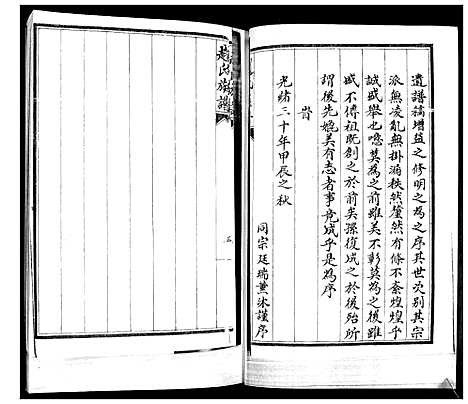 遺譜積增益之修明之為之序其世次別其宗
派無凌亂無掛漏秩然釐然有條不紊煌煌乎
誠盛舉也噫莫為之前雖美不彰莫為之後雖
盛不傳祖既創之於前矣孫復成之於後殆所
謂後先媲美有志者事竟成乎是為序
旹
光緒三十年甲辰之秋
同宗廷瑞薰沐謹序
趙氏族譜